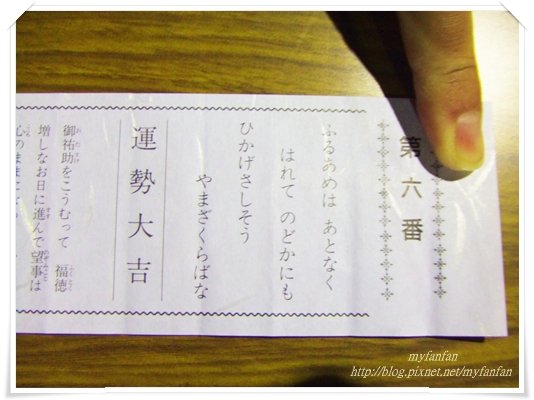 第六番
ふるあめは あとなく
はれて のどかにも
ひかげさしそう
やまざくらばな
運勢大吉
御祐助をこうむって 福徳
増しなお日に進んで望事は
心のままに
myfanfan
http://blog.pixnet.net/myfanfan